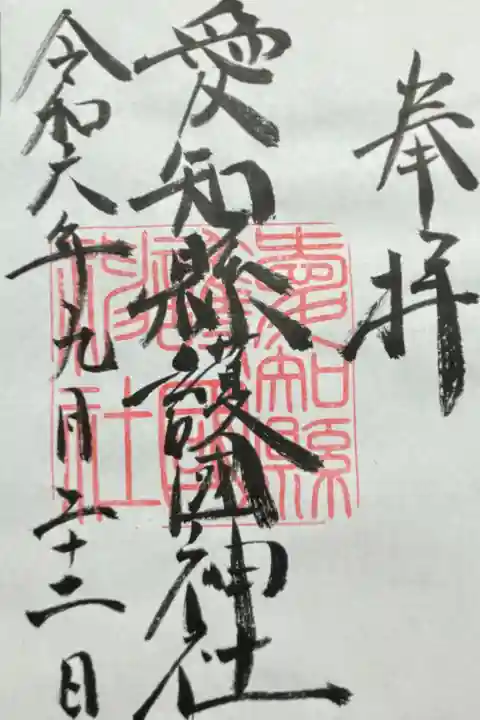 奉拝
愛知縣護国神社
令和六年九月二十二日
愛知縣
護國
神社